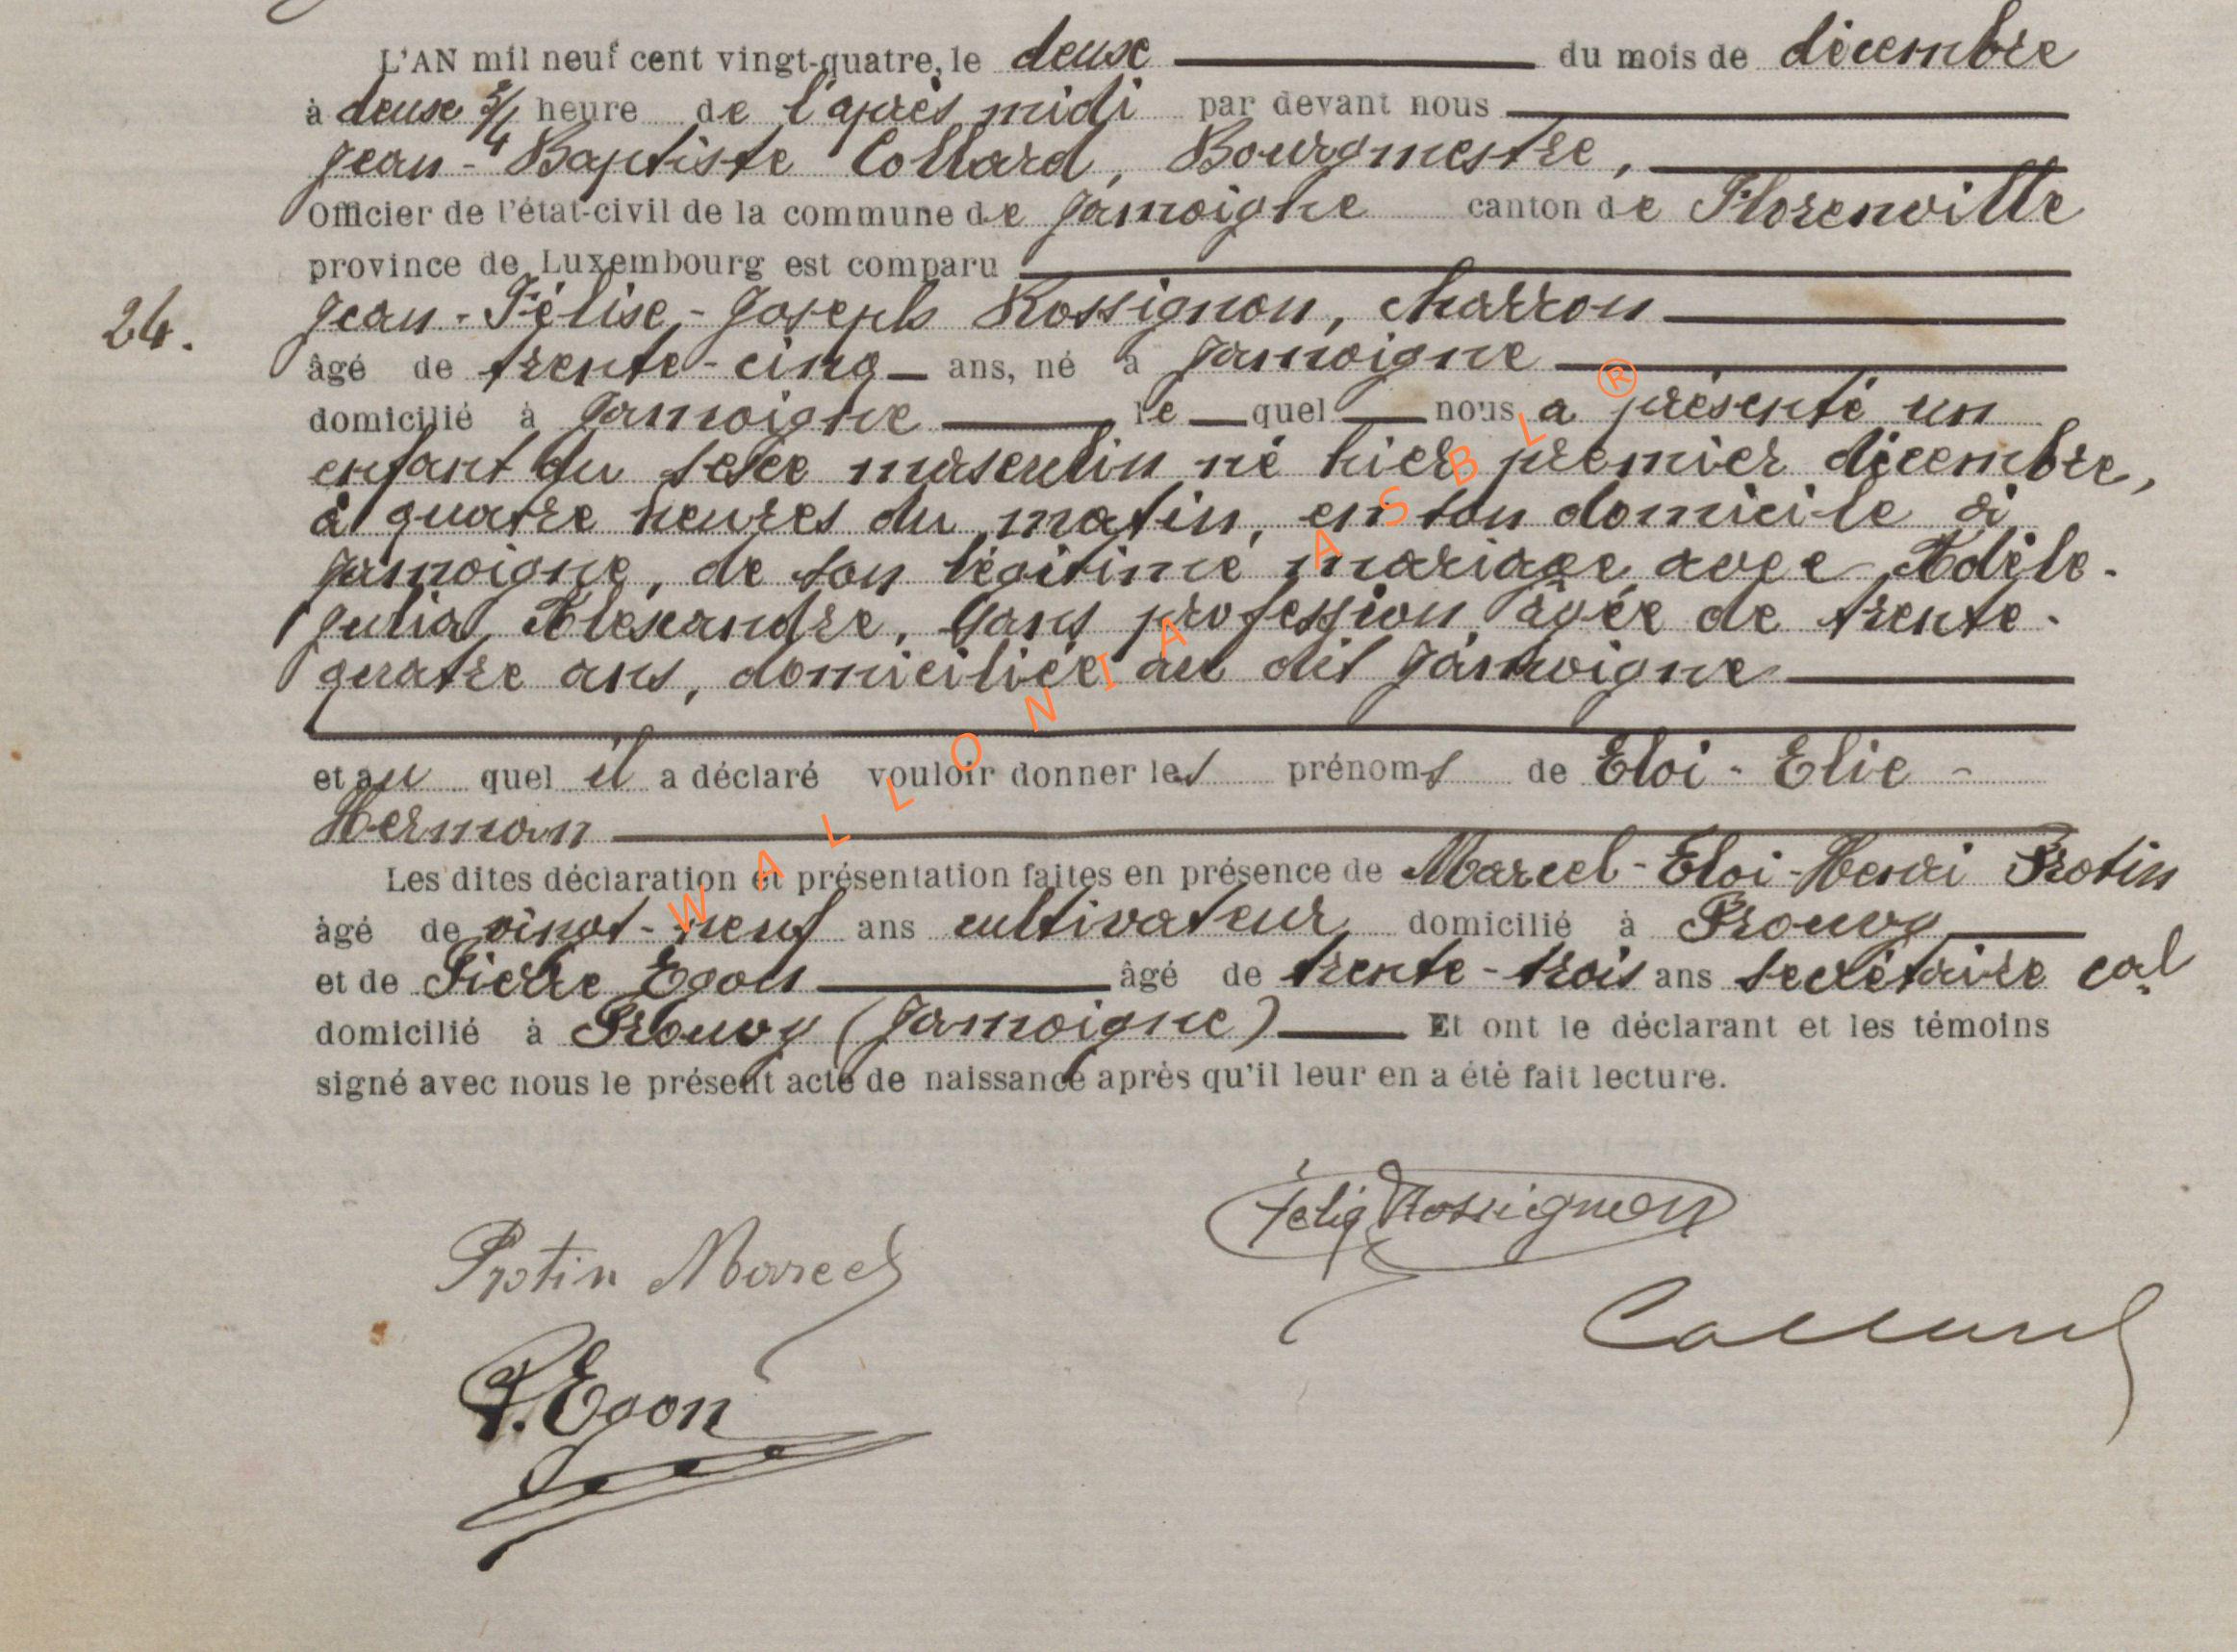 L'AN mil neuf cent vingt-quatre, le deux du mois de décembre
à deux 3/4 heure de l'après midi par devant nous
Jean-Baptiste Collard, Bourgmestre,
Officier de l'état-civil de la commune de Jamoigne canton de Florenville
province de Luxembourg est comparu
24.
Jean-Félix-Joseph Rossignon, charron
âgé de trente-cinq ans, né à Jamoigne
domicilié à Jamoigne le quel nous a présenté un
enfant du sexe masculin né hier premier décembre,
à quatre heures du matin, en son domicile à
Jamoigne, de son légitime mariage avec Adèle-
Julia Alexandre, sans profession, âgée de trente-
quatre ans, domiciliée au dit Jamoigne
et au quel il a déclaré vouloir donner les prénoms de Eloi-Elie-
Herman
Les dites déclaration et présentation faites en présence de Marcel-Eloi-Henri Protin
âgé de vingt-neuf ans cultivateur domicilié à Prouvy
et de Pierre Egon âgé de trente-trois ans secrétaire cal
domicilié à Prouvy (Jamoigne) Et ont le déclarant et les témoins
signé avec nous le présent acte de naissance après qu'il leur en a été fait lecture.
Félix Rossignon
Protin Marcel
Collard
P. Egon
WALLONIA ASBL ®